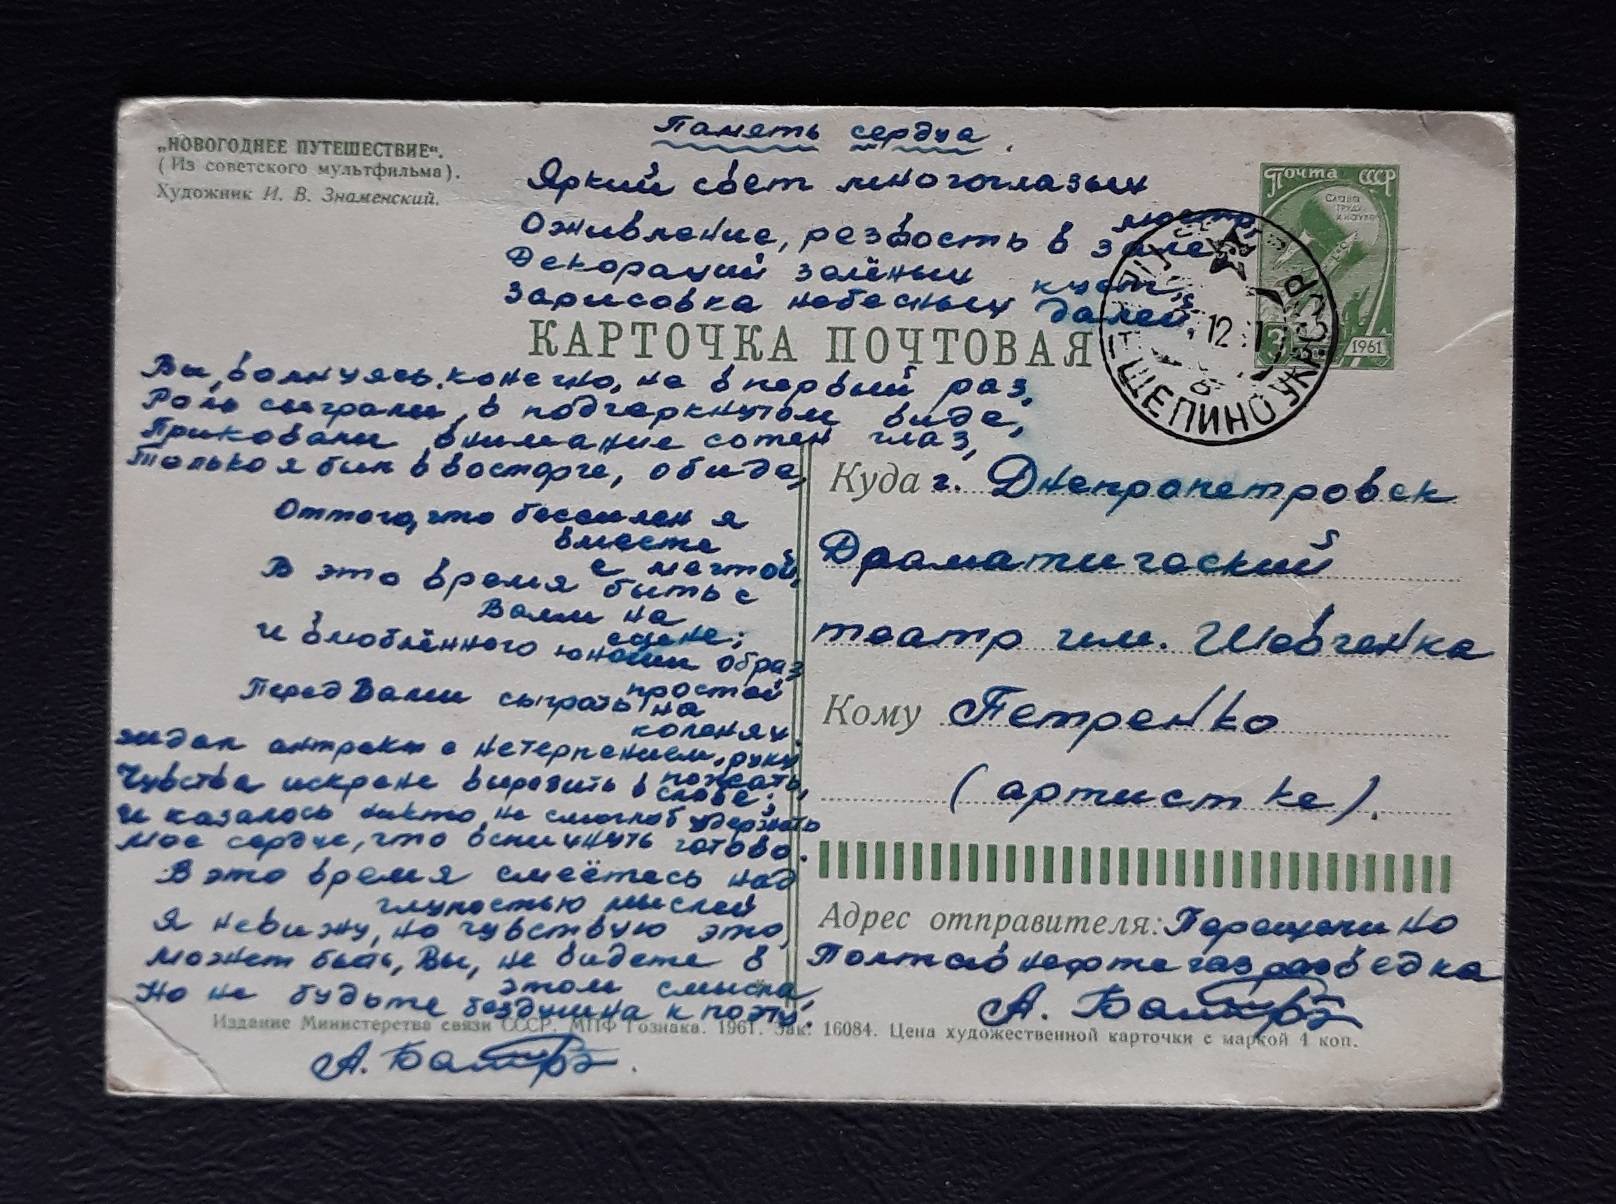 „НОВОГОДНЕЕ ПУТЕШЕСТВИЕ“.
(Из советского мультфильма).
Художник И. В. Знаменский.
Память сердца.
Яркий свет многоглазых
люстр,
Оживление, резвость в зале
Декораций зелёный куст,
Зарисовка небесных далей.
Почта СССР
СЛАВА
ТРУДУ
И НАУКЕ
3
1961
12
ЩЕПИНО УКР.ССР
КАРТОЧКА ПОЧТОВАЯ
Вы, волнуясь, конечно, не в первый раз,
Роль сыграли, в подчеркнутом виде,
Приковали внимание сотен глаз,
Только я был в восторге, обиде,
Оттого, что бессилен я
вместе
с мечтой,
В это время быть с
Вами на
сцене;
И влюблённого юноши образ
простой
Перед Вами сыграть на
коленях.
Ждал антракт с нетерпением, руку
пожать,
Чувства искрене выразить в
слове;
И казалось никто, не смог б удержать
Мое сердце, что вспыхнуть готово.
В это время смеётесь над
глупостью мыслей
Я не вижу, но чувствую это,
Может быть, Вы, не видете в
этом смысла,
Но не будьте бездушна к поэту.
А.
Куда г. Днепропетровск
Драматический
театр им. Шевченка
Кому Петренко
(артистке).
Адрес отправителя: Перещепино
нефтегазразведка
А.
Издание Министерства связи СССР. МПФ Гознака. 1961. Зак. 16084. Цена художественной карточки с маркой 4 коп.